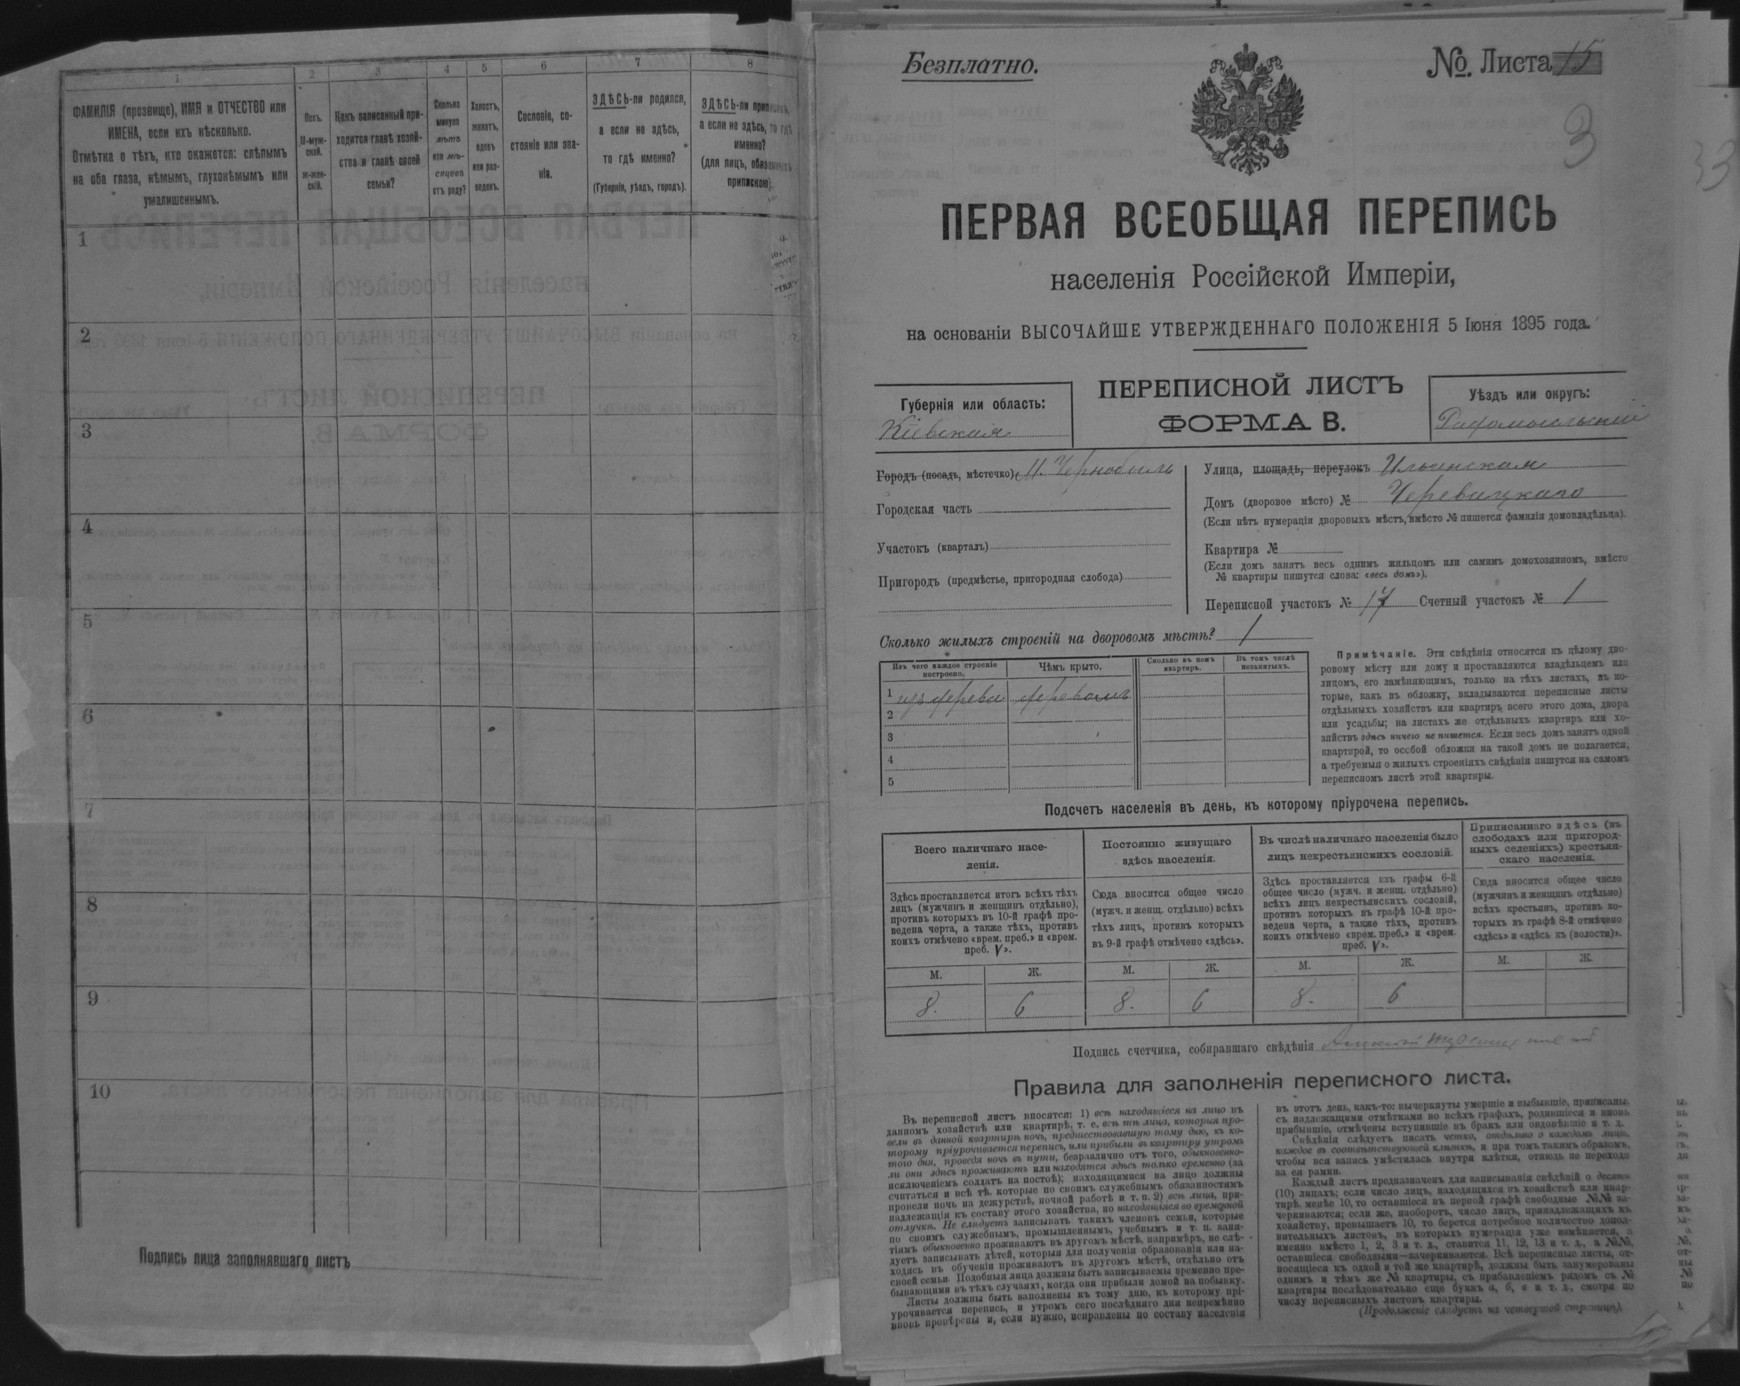 1
2
3
4
5
6
7
8
ФАМИЛІЯ (прозвище), ИМЯ и ОТЧЕСТВО или
ИМЕНА, если ихъ нѣсколько.
Отмѣтка о тѣхъ, кто окажется: слѣпымъ
на оба глаза, нѣмымъ, глухонѣмымъ или
умалишеннымъ.
Полъ.
М-муж-
ской.
Ж-жен-
скій.
Какъ записанный при-
ходится главѣ хозяй-
ства и главѣ своей
семьи?
Сколько
минуло
лѣтъ
или мѣ-
сяцевъ
отъ роду?
Холостъ,
женатъ,
вдовъ
или раз-
веденъ.
Сословіе, со-
стояніе или зва-
ніе.
ЗДѢСЬ-ли родился,
а если не здѣсь,
то гдѣ именно?
(Губернія, уѣздъ, городъ).
ЗДѢСЬ-ли приписанъ,
а если не здѣсь, то гдѣ
именно?
(для лицъ, обязанныхъ
припискою).
1
2
3
4
5
6
7
8
9
10
Подпись лица заполнявшаго листъ
Безплатно.
№. Листа 15
3
33
ПЕРВАЯ ВСЕОБЩАЯ ПЕРЕПИСЬ
населенія Россійской Имперіи,
на основаніи ВЫСОЧАЙШЕ УТВЕРЖДЕННАГО ПОЛОЖЕНІЯ 5 Іюня 1895 года.
Губернія или область:
Кіевская
ПЕРЕПИСНОЙ ЛИСТЪ
ФОРМА В.
Уѣздъ или округъ:
Радомысльскій
Городъ (посадъ, мѣстечко) М. Чернобыль
Городская часть
Участокъ (кварталъ)
Пригородъ (предмѣстье, пригородная слобода)
Улица, площадь, переулокъ Ильинская
Домъ (дворовое мѣсто) № Черевацкаго
(Если нѣтъ нумераціи дворовыхъ мѣстъ, вмѣсто № пишется фамилія домовладѣльца).
Квартира №
(Если домъ занятъ весь однимъ жильцомъ или самимъ домохозяиномъ, вмѣсто
№ квартиры пишутся слова: «весь домъ»).
Переписной участокъ № 17 Счетный участокъ № 1
Сколько жилыхъ строеній на дворовомъ мѣстѣ? 1
Изъ чего каждое строеніе
построено.
Чѣмъ крыто.
Сколько въ немъ
квартиръ.
Въ томъ числѣ
незанятыхъ.
1 изъ дерева деревомъ
2
3
4
5
Примѣчаніе. Эти свѣдѣнія относятся къ цѣлому дво-
ровому мѣсту или дому и проставляются владѣльцемъ или
лицомъ, его замѣняющимъ, только на тѣхъ листахъ, въ ко-
торые, какъ въ обложку, вкладываются переписные листы
отдѣльныхъ хозяйствъ или квартиръ всего этого дома, двора
или усадьбы; на листахъ же отдѣльныхъ квартиръ или хо-
зяйствъ здѣсь ничего не пишется. Если весь домъ занятъ одной
квартирой, то особой обложки на такой домъ не полагается,
а требуемыя о жилыхъ строеніяхъ свѣдѣнія пишутся на самомъ
переписномъ листѣ этой квартиры.
Подсчетъ населенія въ день, къ которому пріурочена перепись.
Всего наличнаго насе-
ленія.
Здѣсь проставляется итогъ всѣхъ тѣхъ
лицъ (мужчинъ и женщинъ отдѣльно),
противъ которыхъ въ 10-й графѣ про-
ведена черта, а также тѣхъ, противъ
коихъ отмѣчено «врем. преб.» и «врем.
преб. V».
Постоянно живущаго
здѣсь населенія.
Сюда вносится общее число
(мужч. и женщ. отдѣльно) всѣхъ
тѣхъ лицъ, противъ которыхъ
въ 9-й графѣ отмѣчено «здѣсь».
Въ числѣ наличнаго населенія было
лицъ некрестьянсмихъ сословій.
Здѣсь проставляется изъ графы 6-й
общее число (мужч. и женщ. отдѣльно)
всѣхъ лицъ некрестьянскихъ сословій,
противъ которыхъ въ графѣ 10-й про-
ведена черта, а также тѣхъ, противъ
коихъ отмѣчено «врем. преб.» и «врем.
преб. V».
Приписаннаго здѣсь (въ
слободахъ или пригород-
ныхъ селеніяхъ) крестьян-
скаго населенія.
Сюда вносится общее число
(мужчинъ и женщинъ отдѣльно)
всѣхъ крестьянъ, противъ ко-
торыхъ въ графѣ 8-й отмѣчено
«здѣсь» и «здѣсь къ (волости)».
М. Ж. М. Ж. М. Ж. М. Ж.
8. 6 8. 6 8. 6
Подпись счетчика, собиравшаго свѣдѣнія
Правила для заполненія переписного листа.
Въ переписной листъ вносятся: 1) всѣ находящіеся на лицо въ
данномъ хозяйствѣ или квартирѣ, т. е. всѣ тѣ лица, которыя про-
вели въ данной квартирѣ ночь, предшествовавшую тому дню, къ ко-
торому пріурочивается перепись, или прибыли въ квартиру утромъ
того дня, проведя ночь въ пути, безразлично отъ того, обыкновенно-
ли они здѣсь проживаютъ или находятся здѣсь только временно (за
исключеніемъ солдатъ на постоѣ); находящимися на лицо должны
считаться и всѣ тѣ, которые по своимъ служебнымъ обязанностямъ
провели ночь на дежурствѣ, ночной работѣ и т. п. 2) всѣ лица, при-
надлежащія къ составу этого хозяйства, но находящіяся во временной
отлучкѣ. Не слѣдуетъ записывать такихъ членовъ семьи, которые
по своимъ служебнымъ, промышленнымъ, учебнымъ и т. п. заня-
тіямъ обыкновенно проживаютъ въ другомъ мѣстѣ, напримѣръ, не слѣ-
дуетъ записывать дѣтей, которыя для полученія образованія или на-
ходясь въ обученіи проживаютъ въ другомъ мѣстѣ, отдѣльно отъ
своей семьи. Подобныя лица должны быть записываемы временно пре-
бывающими въ тѣхъ случаяхъ, когда они прибыли домой на побывку.
Листы должны быть заполнены къ тому дню, къ которому прі-
урочивается перепись, и утромъ сего послѣдняго дня непремѣнно
вновь провѣрены и, если нужно, исправлены по составу населенія
въ этотъ день, какъ-то: вычеркнуты умершіе и выбывшіе, приписаны,
съ надлежащими отмѣтками во всѣхъ графахъ, родившіеся и вновь
прибывшіе, отмѣчены вступившіе въ бракъ или овдовѣвшіе и т. д.
Свѣдѣнія слѣдуетъ писать четко, отдѣльно о каждомъ лицѣ,
каждое въ соотвѣтствующей клѣткѣ, и при томъ такимъ образомъ,
чтобы вся запись умѣстилась внутри клѣтки, отнюдь не переходя
за ея рамки.
Каждый листъ предназначенъ для записыванія свѣдѣній о десяти
(10) лицахъ; если число лицъ, находящихся въ хозяйствѣ или квар-
тирѣ, менѣе 10, то оставшіеся въ первой графѣ свободные №№ за-
черкиваются; если же, наоборотъ, число лицъ, принадлежащихъ къ
хозяйству, превышаетъ 10, то берется потребное количество допол-
нительныхъ листовъ, въ которыхъ нумерація уже измѣняется, а
именно вмѣсто 1, 2, 3 и т. д., ставится 11, 12, 13 и т. д., а №№,
оставшіеся свободными—зачеркиваются. Всѣ переписные листы, от-
носящіеся къ одной и той же квартирѣ, должны быть занумерованы
однимъ и тѣмъ же № квартиры, съ прибавленіемъ рядомъ съ №
квартиры послѣдовательно еще буквъ а, б, в и т. д., смотря по
числу переписныхъ листовъ квартиры.
(Продолженіе слѣдуетъ на четвертой страницѣ).